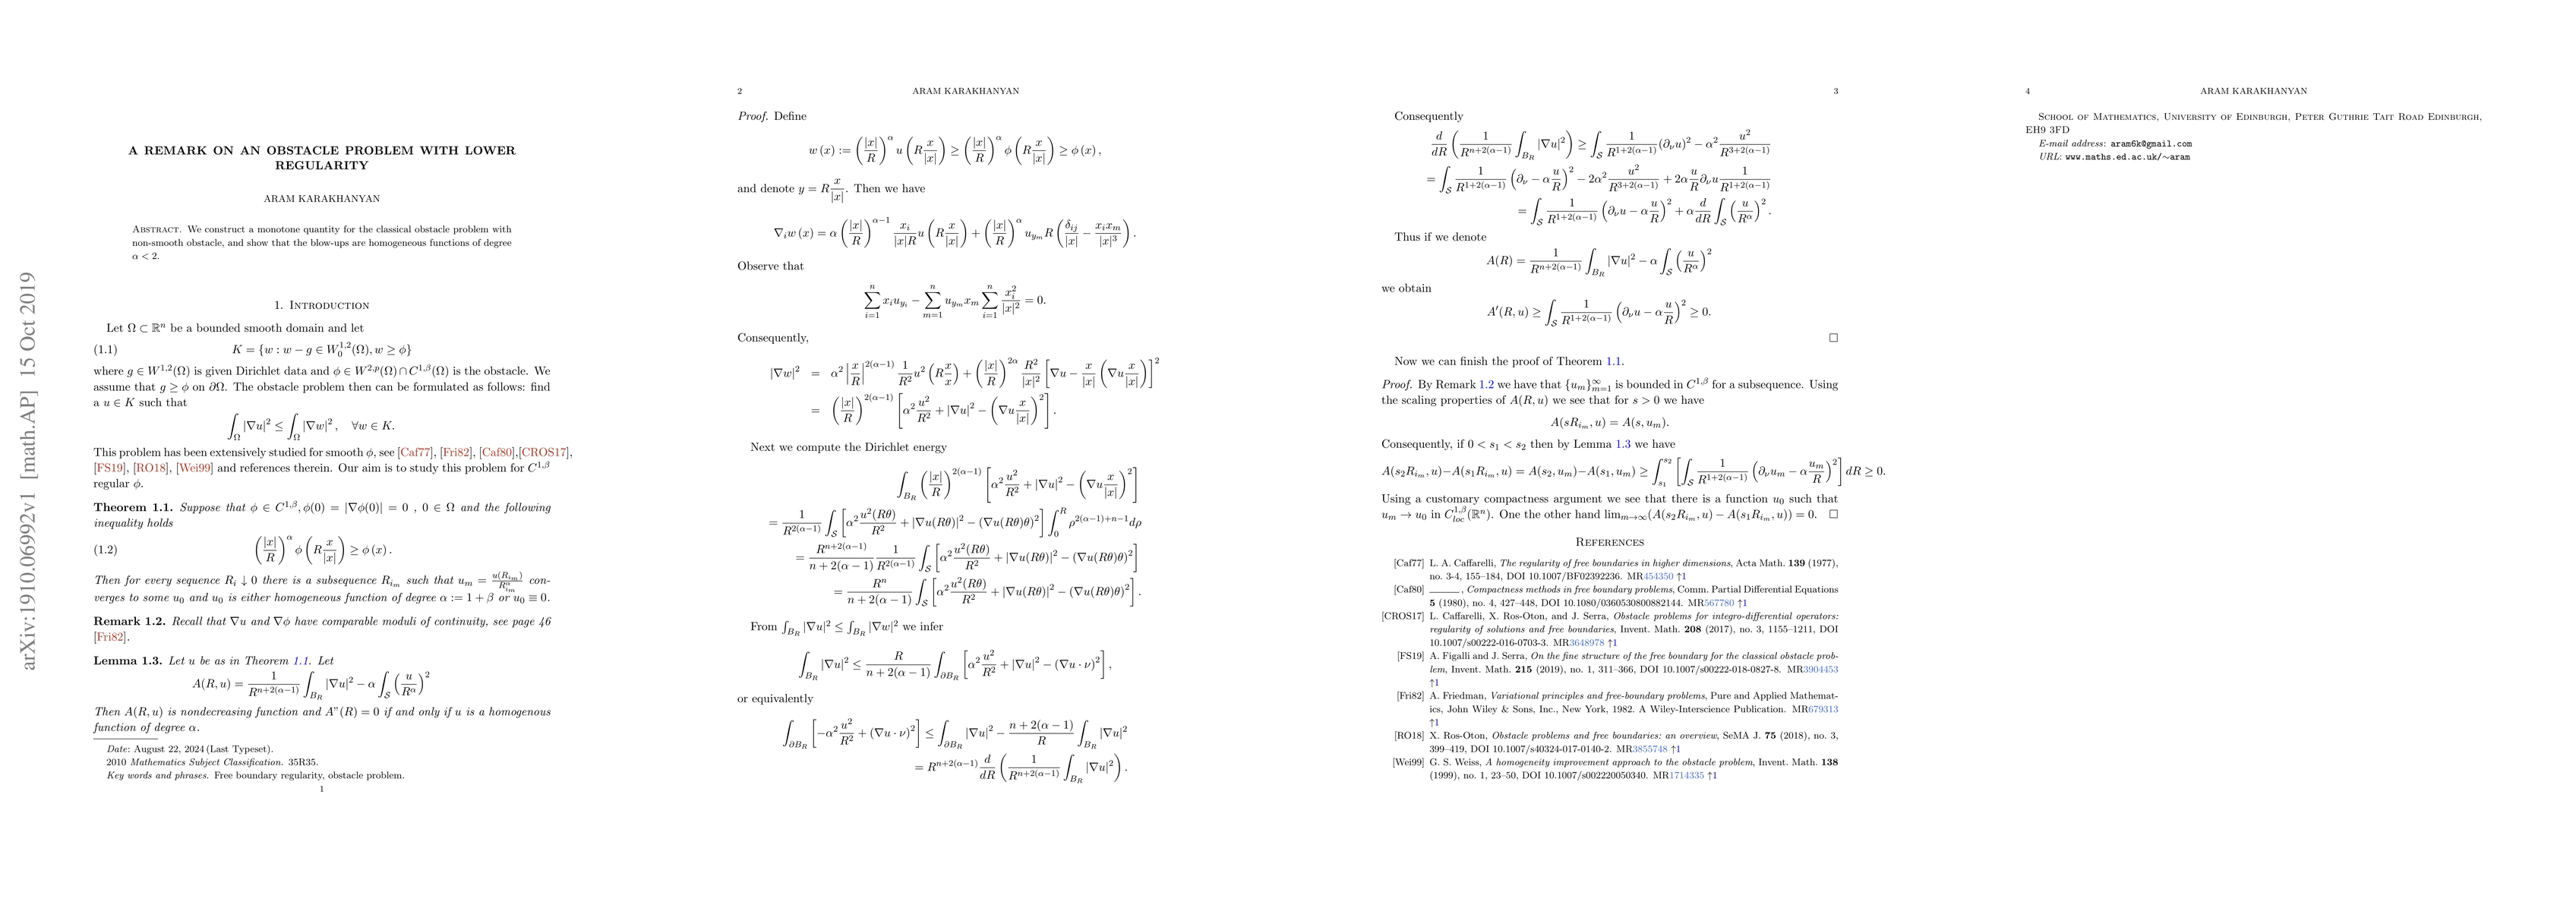 arXiv:1910.06992v1 [math.AP] 15 Oct 2019
A REMARK ON AN OBSTACLE PROBLEM WITH LOWER
REGULARITY
ARAM KARAKHANYAN
Abstract. We construct a monotone quantity for the classical obstacle problem with
non-smooth obstacle, and show that the blow-ups are homogeneous functions of degree
α < 2.
1. Introduction
Let Ω ⊂ ℝⁿ be a bounded smooth domain and let
(1.1) K = {w : w − g ∈ W_0^{1,2}(Ω), w ≥ ϕ}
where g ∈ W^{1,2}(Ω) is given Dirichlet data and ϕ ∈ W^{2,p}(Ω) ∩ C^{1,β}(Ω) is the obstacle. We
assume that g ≥ ϕ on ∂Ω. The obstacle problem then can be formulated as follows: find
a u ∈ K such that
∫_Ω |∇u|² ≤ ∫_Ω |∇w|², ∀w ∈ K.
This problem has been extensively studied for smooth ϕ, see [Caf77], [Fri82], [Caf80],[CROS17],
[FS19], [RO18], [Wei99] and references therein. Our aim is to study this problem for C^{1,β}
regular ϕ.
Theorem 1.1. Suppose that ϕ ∈ C^{1,β}, ϕ(0) = |∇ϕ(0)| = 0 , 0 ∈ Ω and the following
inequality holds
(1.2) (|x|/R)^α ϕ(R x/|x|) ≥ ϕ(x).
Then for every sequence R_i ↓ 0 there is a subsequence R_{i_m} such that u_m = u(R_{i_m})/R_{i_m}^α con-
verges to some u_0 and u_0 is either homogeneous function of degree α := 1 + β or u_0 ≡ 0.
Remark 1.2. Recall that ∇u and ∇ϕ have comparable moduli of continuity, see page 46
[Fri82].
Lemma 1.3. Let u be as in Theorem 1.1. Let
A(R, u) = 1/R^{n+2(α−1)} ∫_{B_R} |∇u|² − α ∫_S (u/R^α)²
Then A(R, u) is nondecreasing function and A"(R) = 0 if and only if u is a homogenous
function of degree α.
Date: August 22, 2024 (Last Typeset).
2010 Mathematics Subject Classification. 35R35.
Key words and phrases. Free boundary regularity, obstacle problem.
1
2 ARAM KARAKHANYAN
Proof. Define
w(x) := (|x|/R)^α u(R x/|x|) ≥ (|x|/R)^α ϕ(R x/|x|) ≥ ϕ(x),
and denote y = R x/|x|. Then we have
∇_i w(x) = α (|x|/R)^{α−1} x_i/(|x|R) u(R x/|x|) + (|x|/R)^α u_{y_m} R (δ_{ij}/|x| − x_i x_m/|x|³).
Observe that
∑_{i=1}^n x_i u_{y_i} − ∑_{m=1}^n u_{y_m} x_m ∑_{i=1}^n x_i²/|x|² = 0.
Consequently,
|∇w|² = α² |x/R|^{2(α−1)} 1/R² u²(R x/x) + (|x|/R)^{2α} R²/|x|² [∇u − x/|x| (∇u x/|x|)]²
= (|x|/R)^{2(α−1)} [α² u²/R² + |∇u|² − (∇u x/|x|)²].
Next we compute the Dirichlet energy
∫_{B_R} (|x|/R)^{2(α−1)} [α² u²/R² + |∇u|² − (∇u x/|x|)²]
= 1/R^{2(α−1)} ∫_S [α² u²(Rθ)/R² + |∇u(Rθ)|² − (∇u(Rθ)θ)²] ∫_0^R ρ^{2(α−1)+n−1}dρ
= R^{n+2(α−1)}/(n + 2(α − 1)) 1/R^{2(α−1)} ∫_S [α² u²(Rθ)/R² + |∇u(Rθ)|² − (∇u(Rθ)θ)²]
= R^n/(n + 2(α − 1)) ∫_S [α² u²(Rθ)/R² + |∇u(Rθ)|² − (∇u(Rθ)θ)²].
From ∫_{B_R} |∇u|² ≤ ∫_{B_R} |∇w|² we infer
∫_{B_R} |∇u|² ≤ R/(n + 2(α − 1)) ∫_{∂B_R} [α² u²/R² + |∇u|² − (∇u · ν)²],
or equivalently
∫_{∂B_R} [−α² u²/R² + (∇u · ν)²] ≤ ∫_{∂B_R} |∇u|² − (n + 2(α − 1))/R ∫_{B_R} |∇u|²
= R^{n+2(α−1)} d/dR (1/R^{n+2(α−1)} ∫_{B_R} |∇u|²).
3
Consequently
d/dR (1/R^{n+2(α−1)} ∫_{B_R} |∇u|²) ≥ ∫_S 1/R^{1+2(α−1)} (∂_ν u)² − α² u²/R^{3+2(α−1)}
= ∫_S 1/R^{1+2(α−1)} (∂_ν − α u/R)² − 2α² u²/R^{3+2(α−1)} + 2α u/R ∂_ν u 1/R^{1+2(α−1)}
= ∫_S 1/R^{1+2(α−1)} (∂_ν u − α u/R)² + α d/dR ∫_S (u/R^α)².
Thus if we denote
A(R) = 1/R^{n+2(α−1)} ∫_{B_R} |∇u|² − α ∫_S (u/R^α)²
we obtain
A′(R, u) ≥ ∫_S 1/R^{1+2(α−1)} (∂_ν u − α u/R)² ≥ 0.
□
Now we can finish the proof of Theorem 1.1.
Proof. By Remark 1.2 we have that {u_m}_{m=1}^∞ is bounded in C^{1,β} for a subsequence. Using
the scaling properties of A(R, u) we see that for s > 0 we have
A(sR_{i_m}, u) = A(s, u_m).
Consequently, if 0 < s_1 < s_2 then by Lemma 1.3 we have
A(s_2R_{i_m}, u)−A(s_1R_{i_m}, u) = A(s_2, u_m)−A(s_1, u_m) ≥ ∫_{s_1}^{s_2} [∫_S 1/R^{1+2(α−1)} (∂_ν u_m − α u_m/R)²] dR ≥ 0.
Using a customary compactness argument we see that there is a function u_0 such that
u_m → u_0 in C_{loc}^{1,β}(ℝⁿ). One the other hand lim_{m→∞}(A(s_2R_{i_m}, u) − A(s_1R_{i_m}, u)) = 0. □
References
[Caf77] L. A. Caffarelli, The regularity of free boundaries in higher dimensions, Acta Math. 139 (1977),
no. 3-4, 155–184, DOI 10.1007/BF02392236. MR454350 ↑1
[Caf80] ______, Compactness methods in free boundary problems, Comm. Partial Differential Equations
5 (1980), no. 4, 427–448, DOI 10.1080/0360530800882144. MR567780 ↑1
[CROS17] L. Caffarelli, X. Ros-Oton, and J. Serra, Obstacle problems for integro-differential operators:
regularity of solutions and free boundaries, Invent. Math. 208 (2017), no. 3, 1155–1211, DOI
10.1007/s00222-016-0703-3. MR3648978 ↑1
[FS19] A. Figalli and J. Serra, On the fine structure of the free boundary for the classical obstacle prob-
lem, Invent. Math. 215 (2019), no. 1, 311–366, DOI 10.1007/s00222-018-0827-8. MR3904453
↑1
[Fri82] A. Friedman, Variational principles and free-boundary problems, Pure and Applied Mathemat-
ics, John Wiley & Sons, Inc., New York, 1982. A Wiley-Interscience Publication. MR679313
↑1
[RO18] X. Ros-Oton, Obstacle problems and free boundaries: an overview, SeMA J. 75 (2018), no. 3,
399–419, DOI 10.1007/s40324-017-0140-2. MR3855748 ↑1
[Wei99] G. S. Weiss, A homogeneity improvement approach to the obstacle problem, Invent. Math. 138
(1999), no. 1, 23–50, DOI 10.1007/s002220050340. MR1714335 ↑1
4 ARAM KARAKHANYAN
School of Mathematics, University of Edinburgh, Peter Guthrie Tait Road Edinburgh,
EH9 3FD
E-mail address: aram6k@gmail.com
URL: www.maths.ed.ac.uk/∼aram